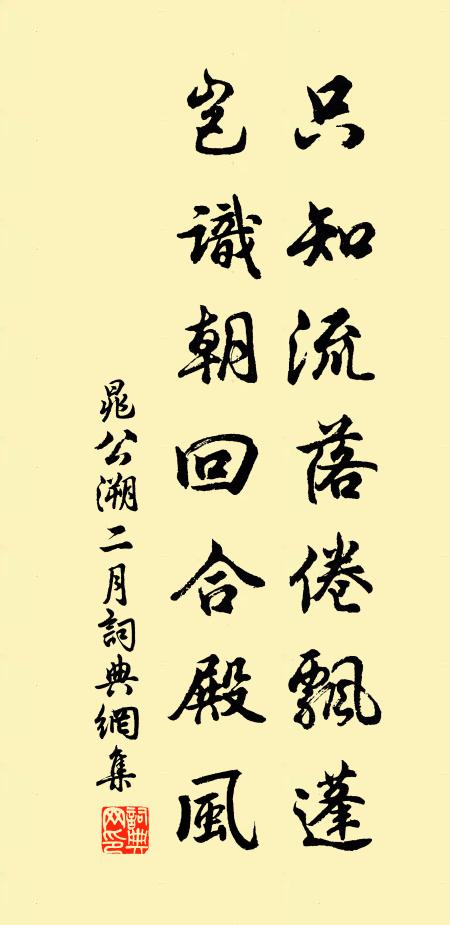 只知流落倦飄蓬
豈識朝回合殿風
晁公溯二月詞典網集
詞典网印